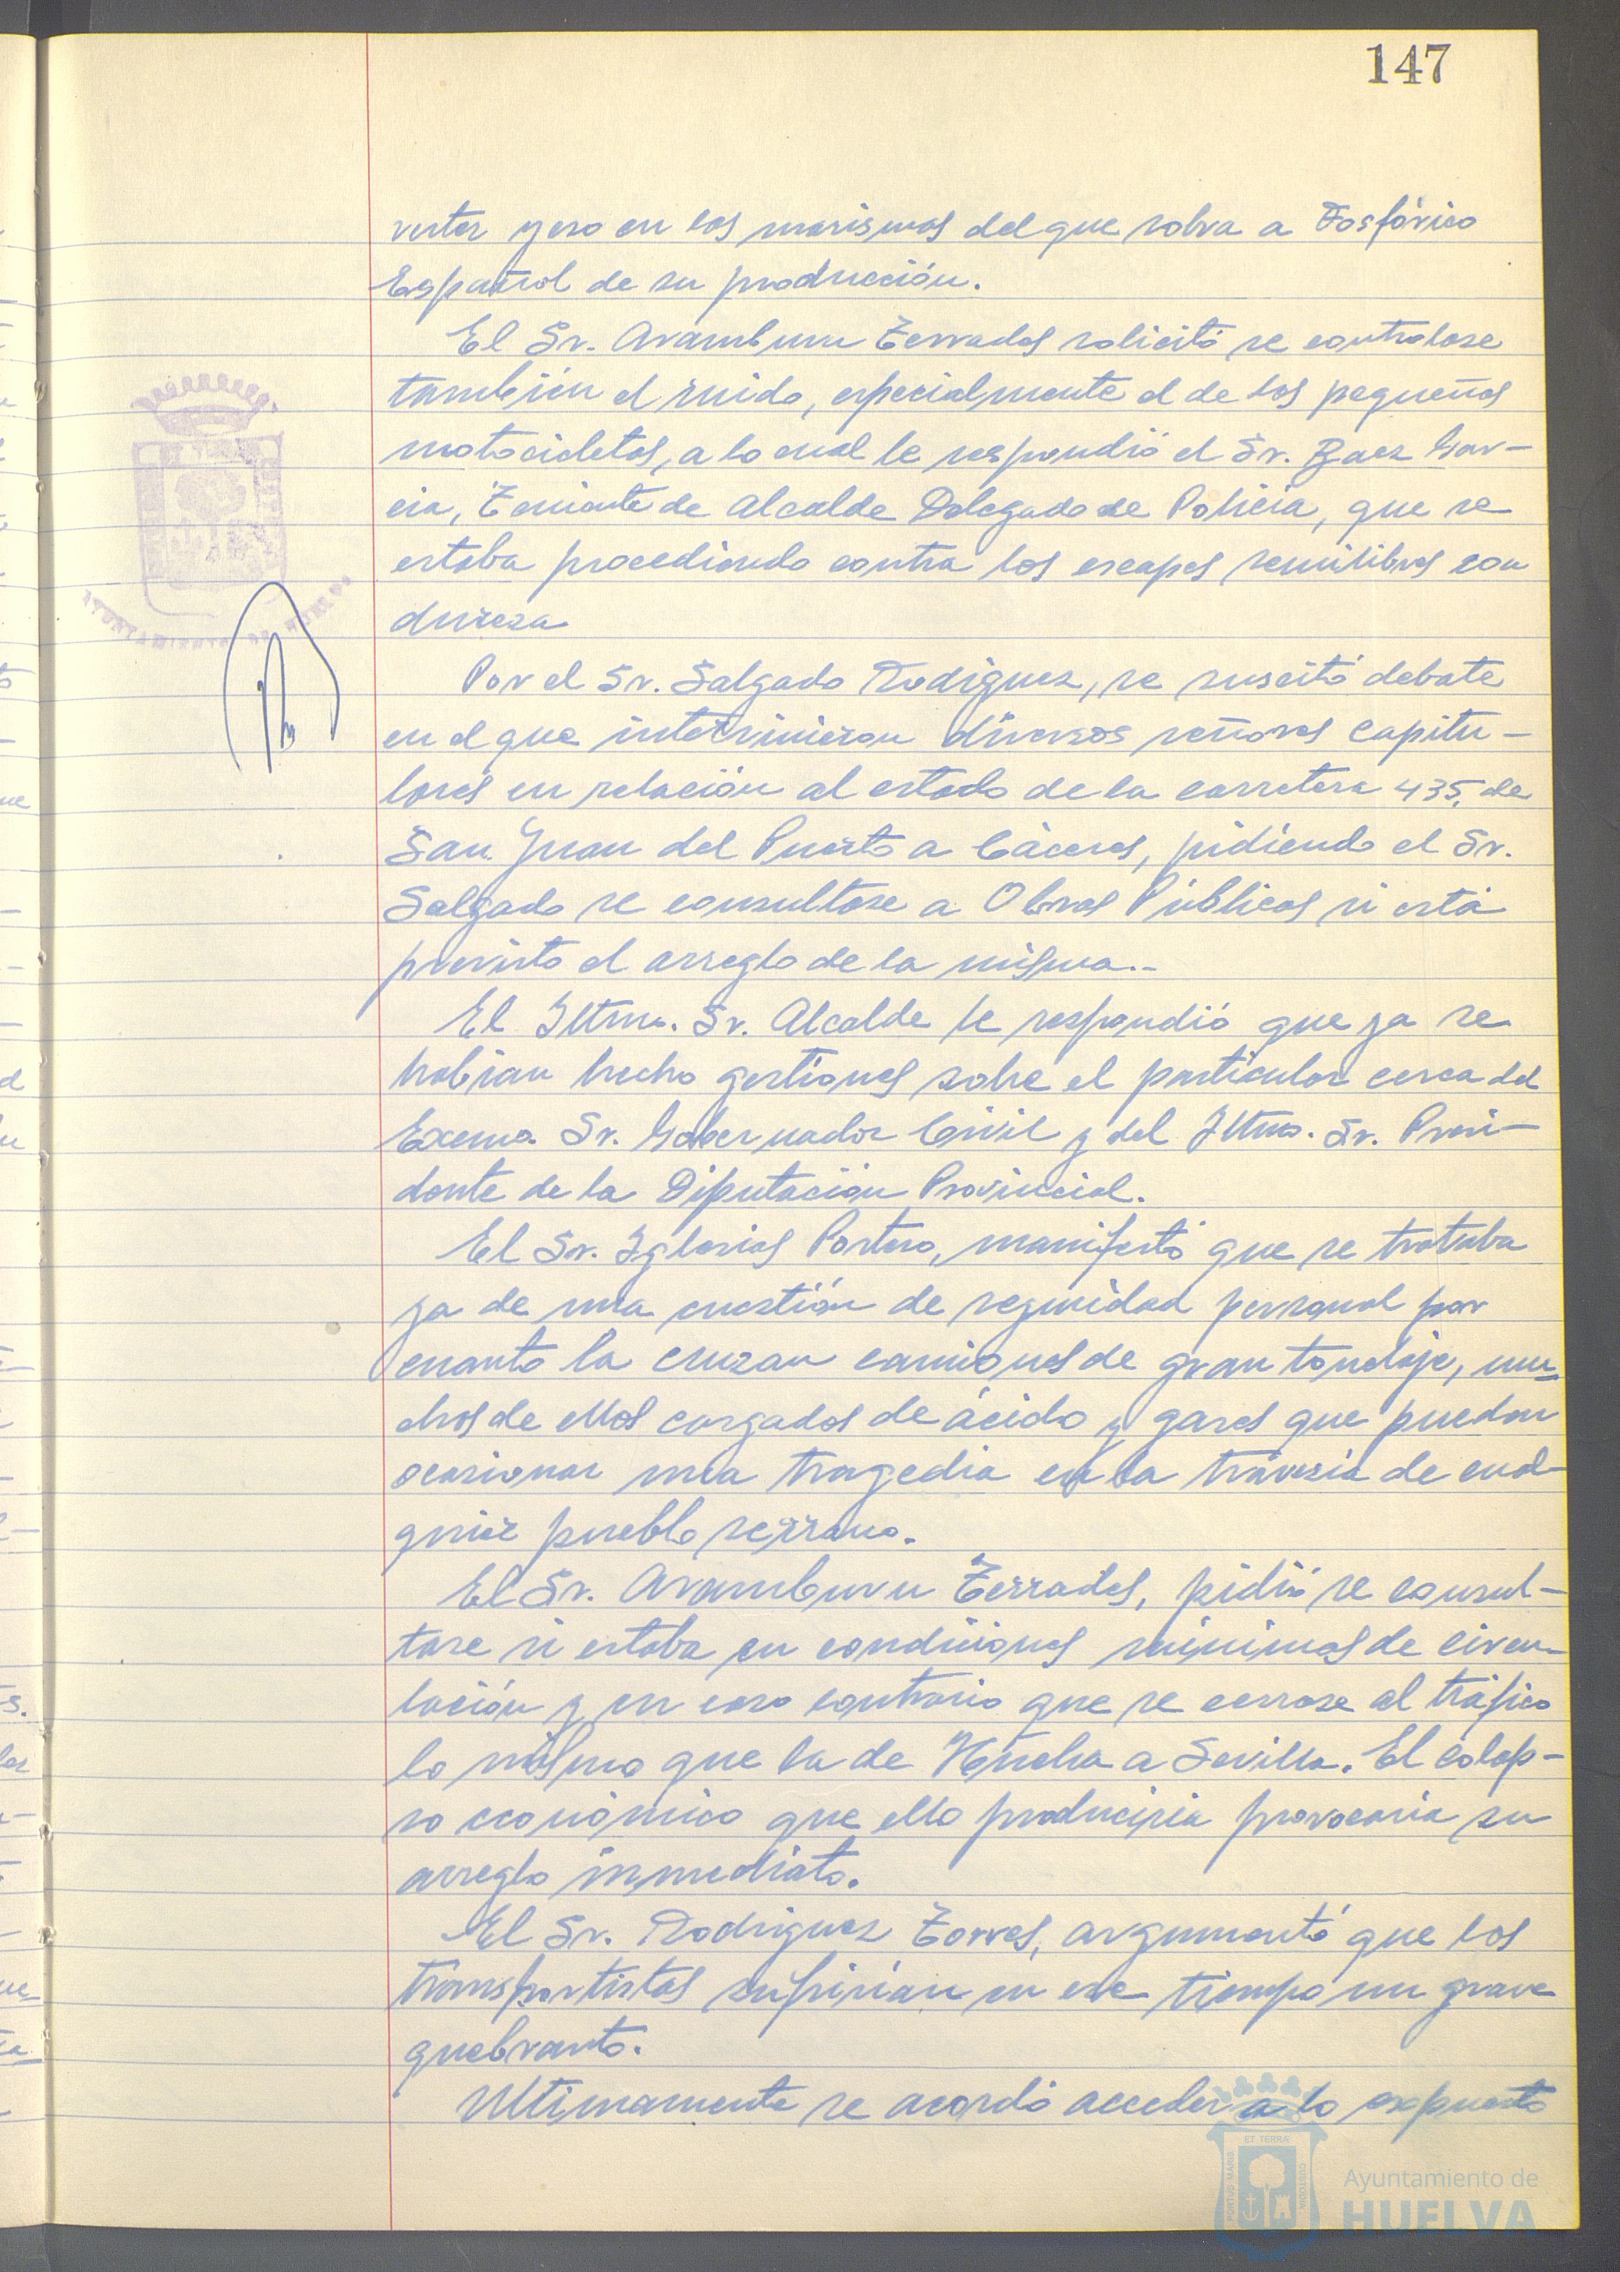 147
verter yeso en las marismas del que sobra a Fosfórico
Español de su producción.
El Sr. Aramburu Terrades solicitó se controlase
también el ruido, especialmente el de las pequeñas
motocicletas, a lo cual le respondió el Sr. Baez Gar-
cia, Teniente de Alcalde Delegado de Policia, que se
estaba procediendo contra los escapes semilibres con
dureza
Por el Sr. Salgado Rodiguez, se suscitó debate
en el que intervinieron diversos señores Capitu-
lares en relación al estado de la carretera 435, de
San Juan del Puerto a Cáceres, pidiendo el Sr.
Salgado se consultase a Obras Públicas si está
previsto el arreglo de la misma..-
El Iltmo. Sr. Alcalde le respondió que ya se
habian hecho gestiones sobre el particular cerca del
Excmo. Sr. Gobernador Civil y del Iltmo. Sr. Presi-
dente de la Diputación Provincial.
El Sr. Iglesias Portero, manifestó que se trataba
ya de una cuestión de seguridad personal por
cuanto la cruzan camiones de gran tonelaje, mu-
chos de ellos cargados de ácido y gases que pueden
ocasionar una tragedia en la travesia de cual-
quier pueblo serrano.
El Sr. Aramburu Terrades, pidió se consul-
tase si estaba en condiciones minimas de circu-
lación y en caso contrario que se cerrase al tráfico
lo mismo que la de Huelva a Sevilla. El colap-
so económico que ello produciria provocaria su
arreglo inmediato.
El Sr. Rodriguez Torres, argumentó que los
transportistas sufririan en ese tiempo un grave
quebranto.
Ultimamente se acordó acceder a lo expuesto
AYUNTAMIENTO DE HUELVA
PORTUS MARIS
ET TERRÆ
CUSTODIA
Ayuntamiento de
HUELVA